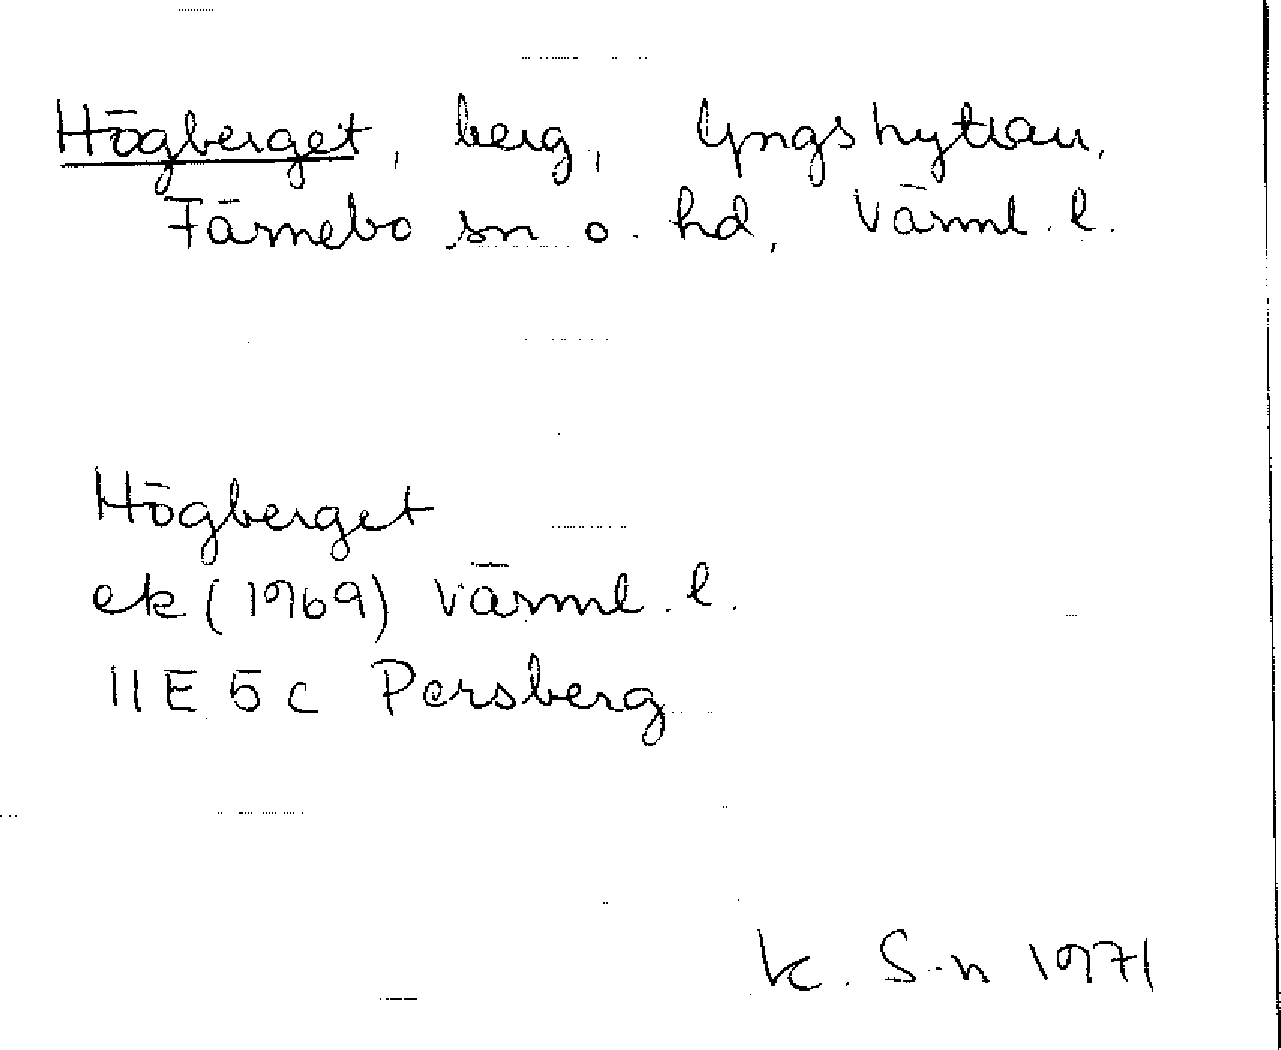 Högberget, berg, Yngshyttan,
Färnebo sn o. hd, Värml. l.
Högberget
ek (1969) Värml. l.
11E 5c Persberg
K. S-n 1971